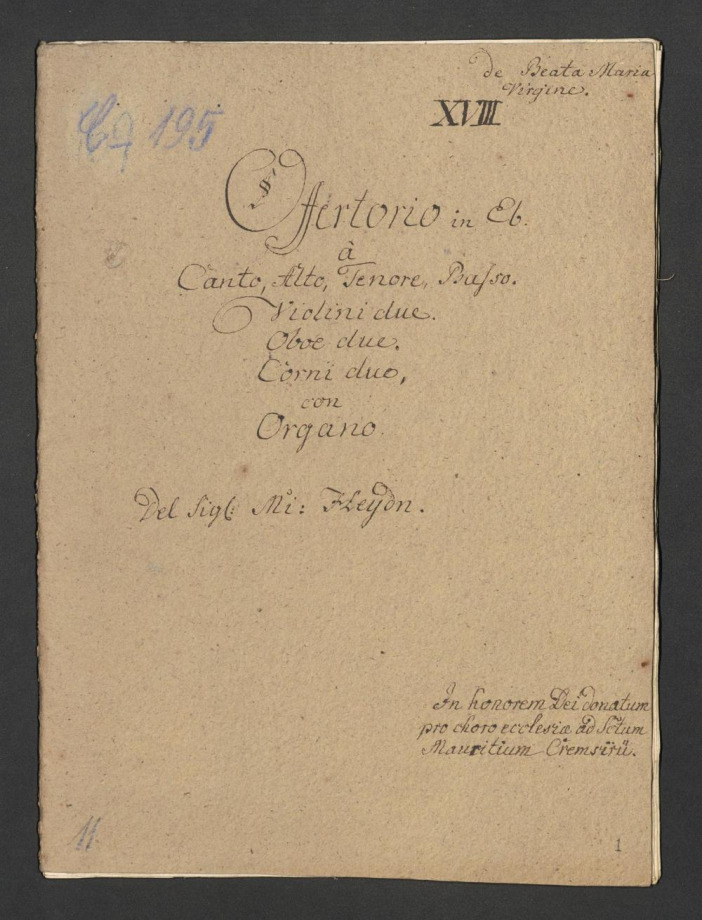 de Beata Maria
Virgine.
XVIII
195
Offertorio in Eb.
à
Canto, Alto, Tenore, Basso.
Violini due.
Oboe due.
Corni due,
con
Organo.
Del Sigl: Mi: Heydn.
In honorem Dei donatum
pro choro ecclesiæ ad Sctum
Mauritium Cremsirii.
11.
1